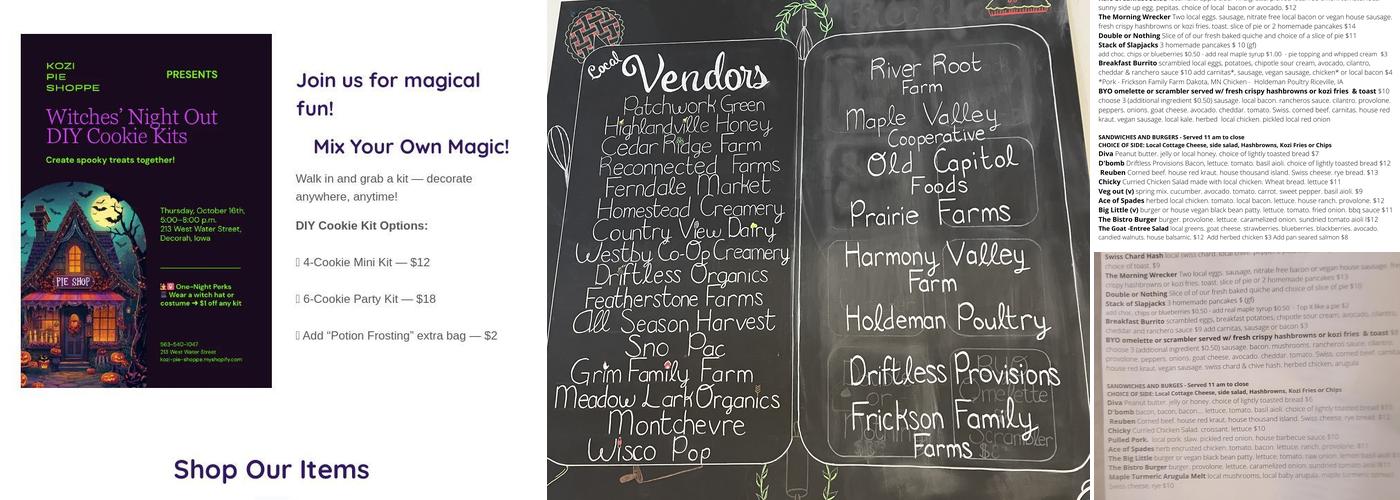 KOZI
PIE
SHOPPE
PRESENTS
Witches' Night Out
DIY Cookie Kits
Create spooky treats together!
Thursday, October 16th,
5:00–8:00 p.m.
213 West Water Street,
Decorah, Iowa
PIE SHOP
One-Night Perks
Wear a witch hat or
costume ➜ $1 off any kit
563-540-1047
213 West Water Street
kozi-pie-shoppe.myshopify.com
Join us for magical
fun!
Mix Your Own Magic!
Walk in and grab a kit — decorate
anywhere, anytime!
DIY Cookie Kit Options:
4-Cookie Mini Kit — $12
6-Cookie Party Kit — $18
Add “Potion Frosting” extra bag — $2
Shop Our Items
Local
Vendors
Patchwork Green
Highlandville Honey
Cedar Ridge Farm
Reconnected Farms
Ferndale Market
Homestead Creamery
Country View Dairy
Westby Co-Op Creamery
Driftless Organics
Featherstone Farms
All Season Harvest
Sno Pac
Grim Family Farm
Meadow Lark Organics
Montchevre
Wisco Pop
River Root
Farm
Maple Valley
Cooperative
Old Capitol
Foods
Prairie Farms
Harmony Valley
Farm
Holdeman Poultry
Driftless Provisions
Frickson Family
Farms
sunny side up egg, pepitas. choice of local bacon or avocado. $12
The Morning Wrecker Two local eggs. sausage, nitrate free local bacon or vegan house sausage.
fresh crispy hashbrowns or kozi fries. toast. slice of pie or 2 homemade pancakes $14
Double or Nothing Slice of of our fresh baked quiche and choice of a slice of pie $11
Stack of Slapjacks 3 homemade pancakes $ 10 (gf)
add choc. chips or blueberries $0.50 - add real maple syrup $1.00 - pie topping and whipped cream $3
Breakfast Burrito scrambled local eggs, potatoes, chipotle sour cream, avocado, cilantro,
cheddar & ranchero sauce $10 add carnitas*, sausage, vegan sausage, chicken* or local bacon $4
*Pork - Frickson Family Farm Dakota, MN Chicken - Holdeman Poultry Riceville, IA
BYO omelette or scrambler served w/ fresh crispy hashbrowns or kozi fries & toast $10
choose 3 (additional ingredient $0.50) sausage. local bacon. rancheros sauce. cilantro. provolone.
peppers. onions. goat cheese. avocado. cheddar. tomato. Swiss. corned beef. carnitas. house red
kraut. vegan sausage. local kale. herbed local chicken. pickled local red onion
SANDWICHES AND BURGERS - Served 11 am to close
CHOICE OF SIDE: Local Cottage Cheese, side salad, Hashbrowns, Kozi Fries or Chips
Diva Peanut butter. jelly or local honey. choice of lightly toasted bread $7
D'bomb Driftless Provisions Bacon, lettuce. tomato. basil aioli. choice of lightly toasted bread $12
Reuben Corned beef. house red kraut. house thousand island. Swiss cheese. rye bread. $13
Chicky Curried Chicken Salad made with local chicken. Wheat bread. lettuce $11
Veg out (v) spring mix. cucumber. avocado. tomato. carrot. sweet pepper. basil aioli. $9
Ace of Spades herbed local chicken. tomato. local bacon. lettuce. house ranch. provolone. $12
Big Little (v) burger or house vegan black bean patty. lettuce. tomato. fried onion. bbq sauce $11
The Bistro Burger burger. provolone. lettuce. caramelized onion. sundried tomato aioli !$12
The Goat -Entree Salad local greens. goat cheese. strawberries. blueberries. blackberries. avocado.
candied walnuts. house balsamic. $12 Add herbed chicken $3 Add pan seared salmon $8
Swiss Chard Hash local swiss chard.
choice of toast. $9
The Morning Wrecker Two local eggs. sausage, nitrate free bacon or vegan house sausage.
crispy hashbrowns or kozi fries. toast. slice of pie or 2 homemade pancakes $13
Double or Nothing Slice of of our fresh baked quiche and choice of a slice of pie $10
Stack of Slapjacks 3 homemade pancakes $ (gf)
add choc. chips or blueberries $0.50 - add real maple syrup $0.50 - Top it like a pie $2
Breakfast Burrito scrambled eggs, breakfast potatoes, chipotle sour cream, avocado, cilantro,
cheddar and ranchero sauce $9 add carnitas, sausage or bacon $3
BYO omelette or scrambler served w/ fresh crispy hashbrowns or kozi fries & toast
choose 3 (additional ingredient $0.50) sausage. bacon. mushrooms. rancheros sauce. cilantro.
provolone. peppers. onions. goat cheese. avocado. cheddar. tomato. Swiss. corned beef.
house red kraut. vegan sausage. swiss chard & chive hash. herbed chicken. arugula
SANDWICHES AND BURGERS - Served 11 am to close
CHOICE OF SIDE: Local Cottage Cheese, side salad, Hashbrowns, Kozi Fries or Chips
Diva Peanut butter. jelly or honey. choice of lightly toasted bread $6
D'bomb bacon, bacon, bacon... lettuce. tomato. basil aioli. choice of lightly toasted bread
Reuben Corned beef. house red kraut. house thousand island. Swiss cheese. rye bread. $12
Chicky Curried Chicken Salad. croissant. lettuce $10
Pulled Pork. local pork. slaw. pickled red onion. house barbecue sauce $10
Ace of Spades herb encrusted chicken. tomato. bacon. lettuce. ranch, provolone. $11
The Big Little burger or vegan black bean patty. lettuce. tomato. raw onion.
The Bistro Burger burger. provolone. lettuce. caramelized onion. sundried tomato aioli
Maple Turmeric Arugula Melt local mushrooms, local baby arugula.
Swiss cheese, rye $10